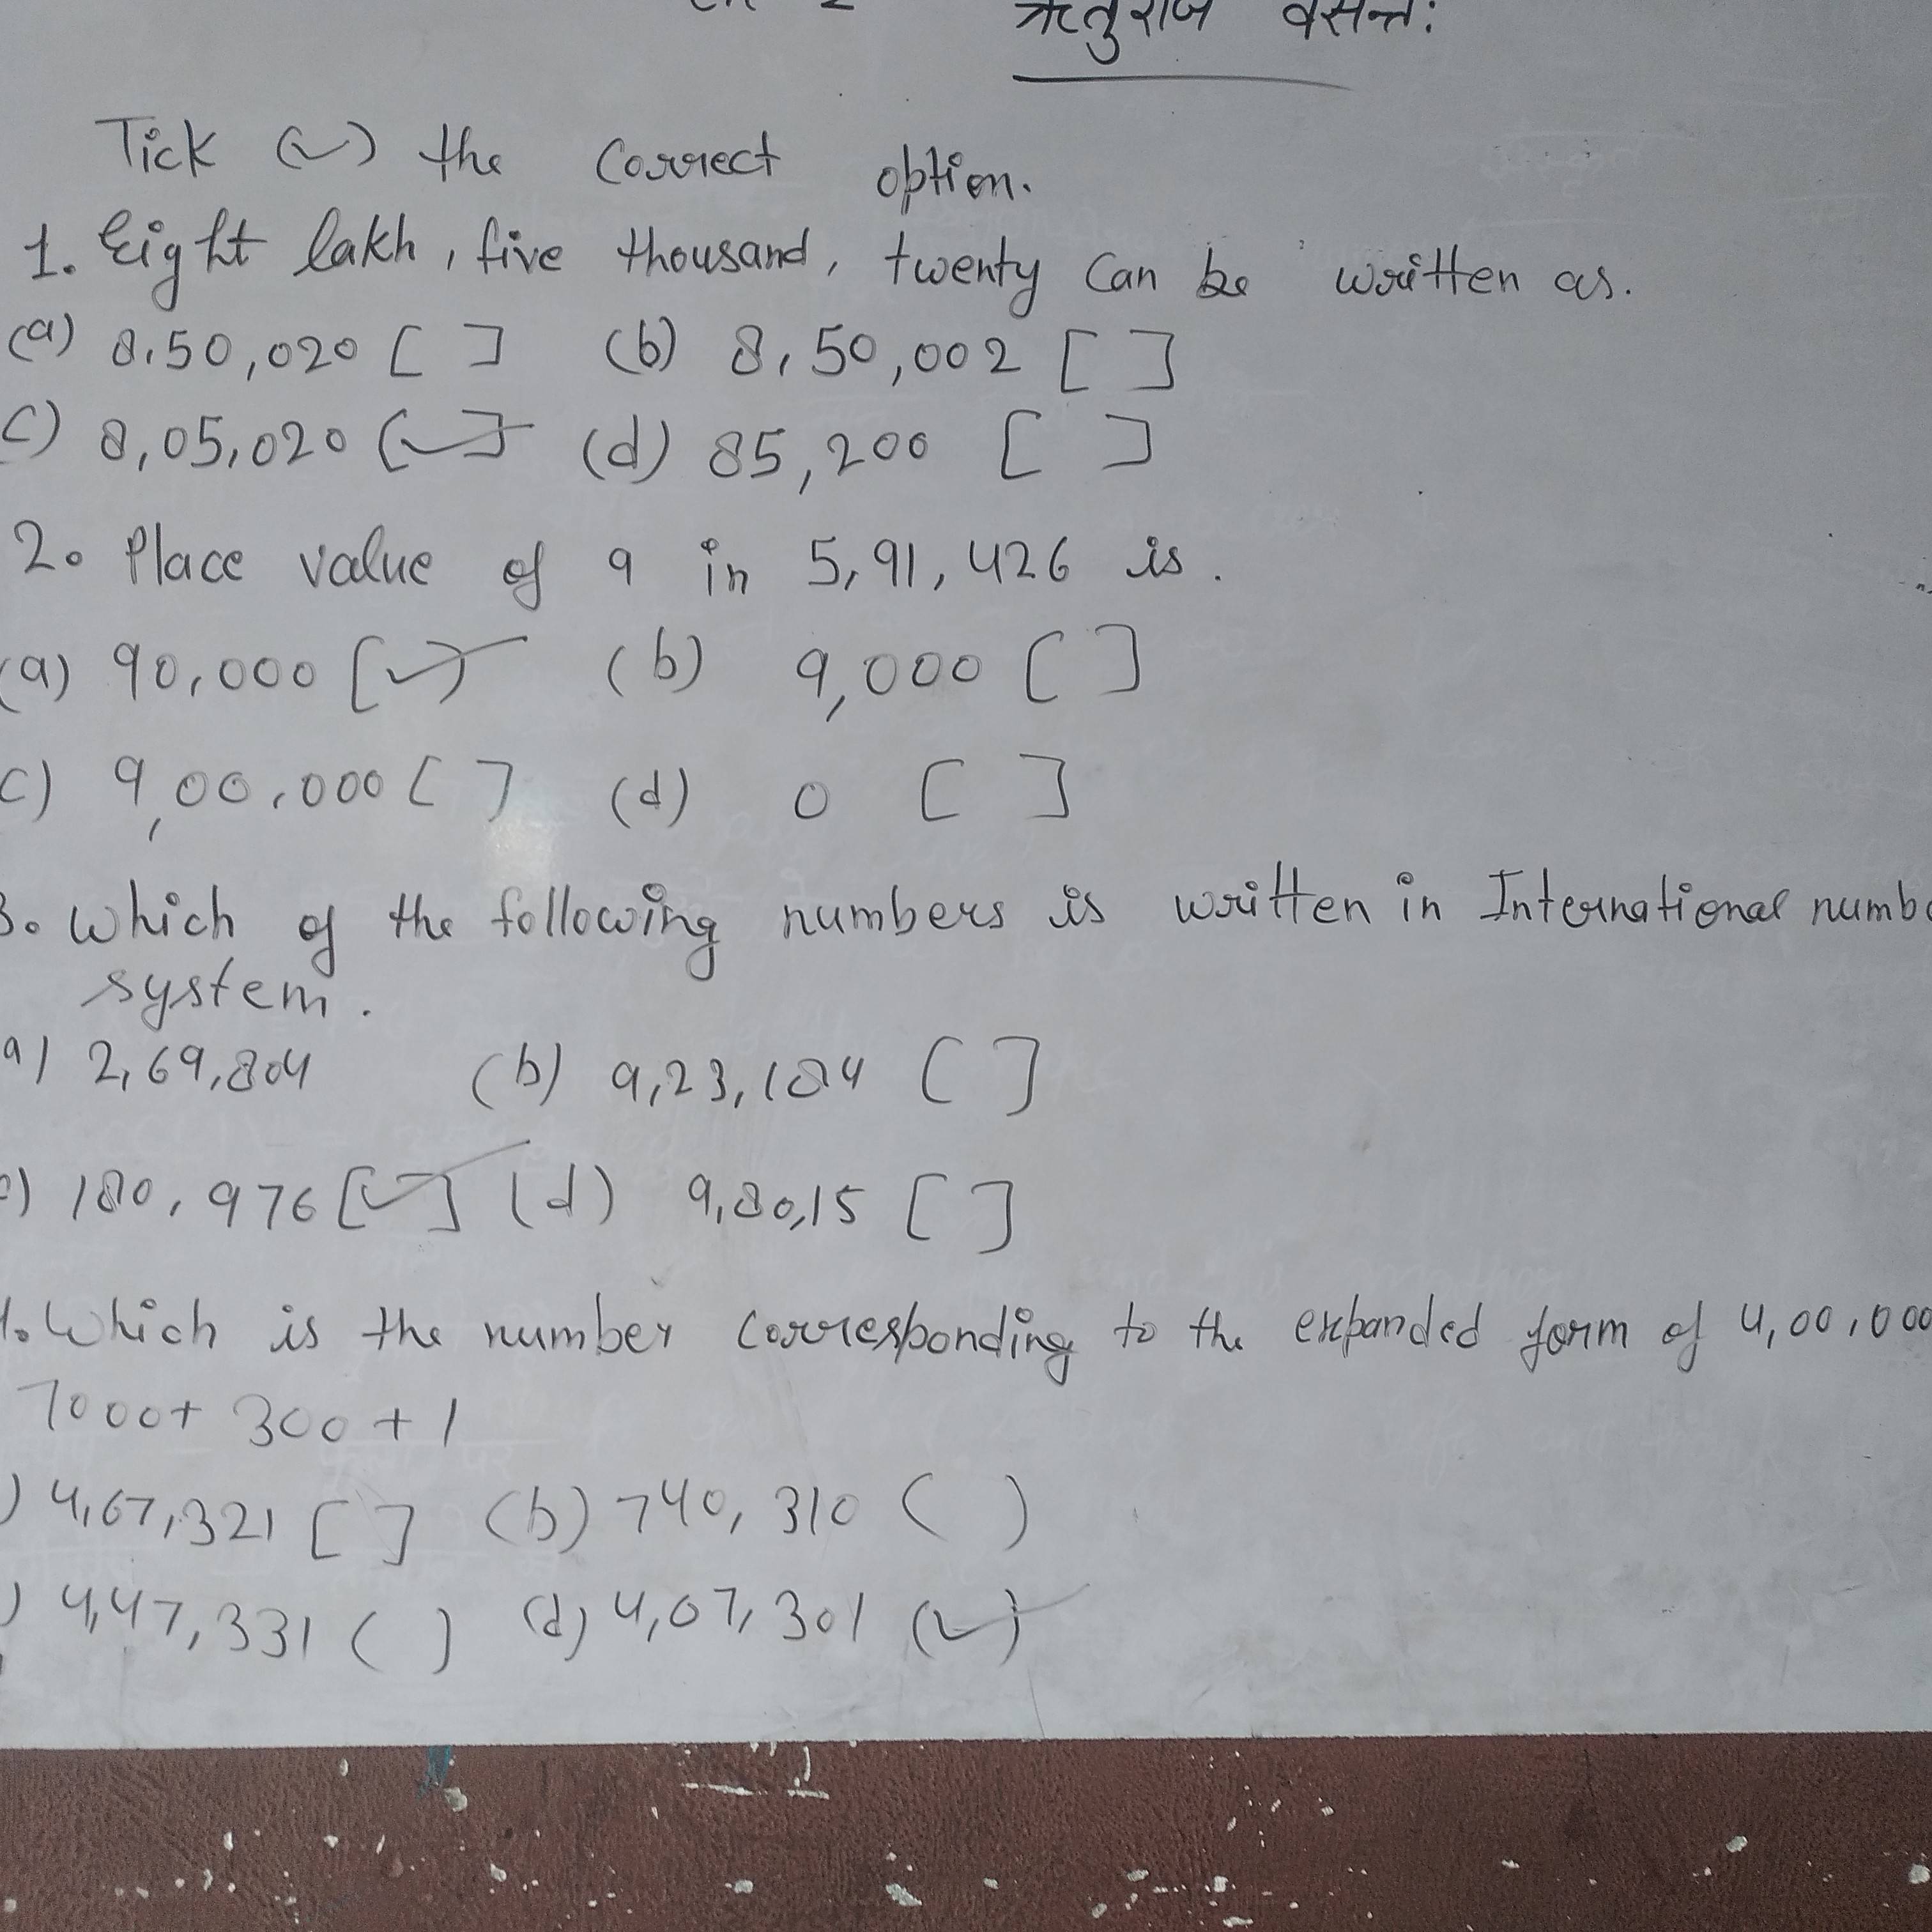 ऋतुराज वसन्त:
Tick (✓) the correct option.
1. Eight lakh, five thousand, twenty can be written as.
(a) 8,50,020 [ ] (b) 8,50,002 [ ]
c) 8,05,020 [✓] (d) 85,200 [ ]
2. Place value of 9 in 5,91,426 is.
(a) 90,000 [✓] (b) 9,000 [ ]
c) 9,00,000 [ ] (d) 0 [ ]
3. Which of the following numbers is written in International numbe
system.
a) 2,69,804 (b) 9,23,184 [ ]
c) 180,976 [✓] (d) 9,80,15 [ ]
4. Which is the number corresponding to the expanded form of 4,00,000
7000+ 300 + 1
) 4,67,321 [ ] (b) 740,310 ( )
) 4,47,331 ( ) (d) 4,07,301 (✓)